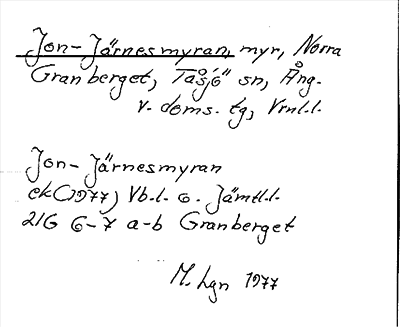 Jon-Järnesmyran, myr, Norra
Granberget, Tåsjö sn, Ång.
v. doms. tg, Vrnl.l.
Jon-Järnesmyran
ek (1977) Vb.l. o. Jämtl.l.
21G 6-7 a-b Granberget
M. Lgn 1977